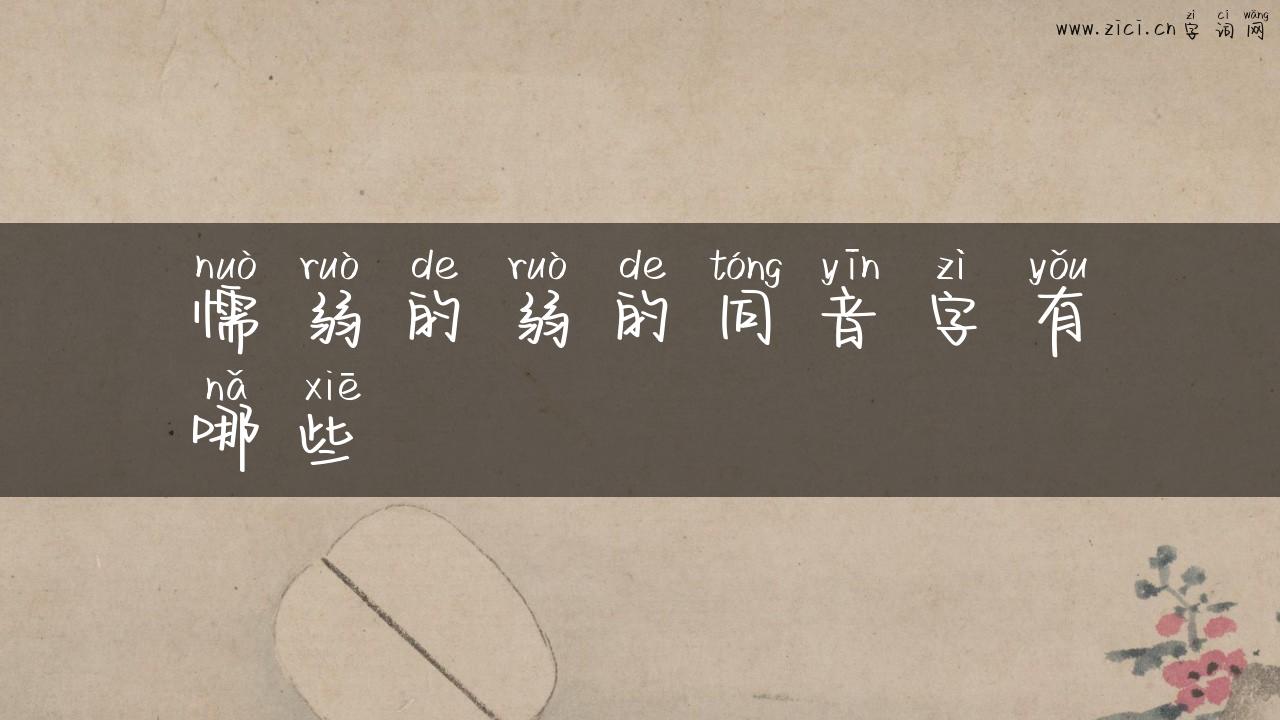 zì cí wǎng
www.zici.cn 字词网
nuò ruò de ruò de tóng yīn zì yǒu
懦弱的弱的同音字有
nǎ xiē
哪些